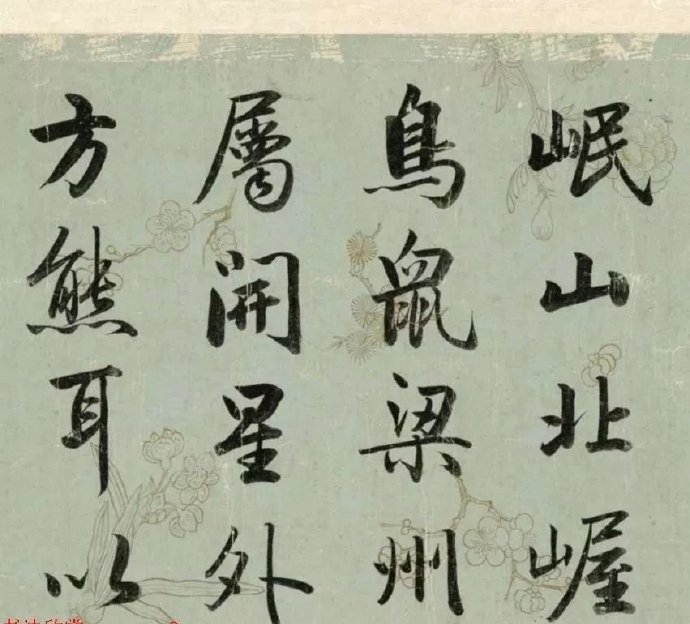 岷山北
鳥鼠梁州
層開星外
方熊耳以